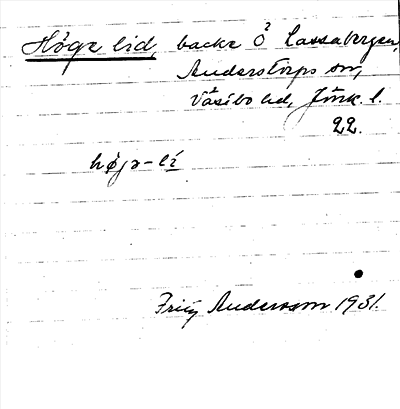 Höge lid, backe Ö Lassabergen,
Anderstorps sn,
Västbo hd, Jönk. l.
22.
højə-lí
Fritz Andersson 1931.